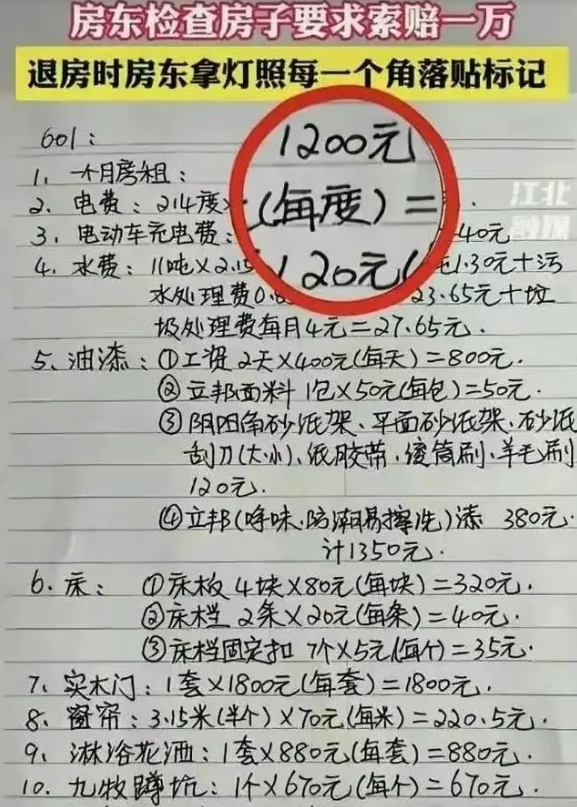 房东检查房子要求索赔一万
退房时房东拿灯照每一个角落贴标记
江北
融媒
601：
1200元
(每度)=
120元(
1、一个月房租：
2、电费：214度
3、电动车充电费： 40元
4、水费：11吨×2.15 1.30元+污
水处理费0. 23.65元+垃
圾处理费每月4元=27.65元.
5、油漆：①工资 2天×400元(每天)=800元.
②立邦面料 1包×50元(每包)=50元.
③阴阳角砂纸架、平面砂纸架、砂纸
刮刀(大小)、纸胶带、滚筒刷、羊毛刷
120元.
④立邦(净味.防潮易擦洗)漆 380元.
计1350元.
6、床：①床板 4块×80元(每块)=320元.
②床栏 2条×20元(每条)=40元.
③床栏固定扣 7个×5元(每个)=35元.
7、实木门：1套×1800元(每套)=1800元.
8、窗帘：3.15米(半个)×70元(每米)=220.5元.
9、淋浴花洒：1套×880元(每套)=880元.
10、九牧蹲坑：1个×670元(每个)=670元.